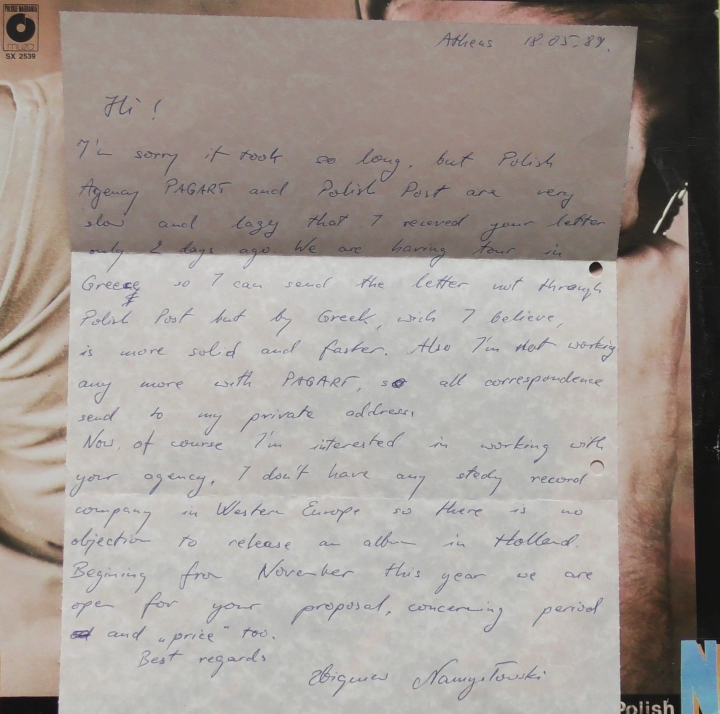 POLSKIE NAGRANIA
muza
SX 2539
Athens 18.05.89.
Hi!
I'm sorry it took so long, but Polish
Agency PAGART and Polish Post are very
slow and lazy that I receved your letter
only 2 days ago. We are having tour in
Greece so I can send the letter not through
Polish Post but by Greek, wich I believe,
is more solid and faster. Also I'm not working
any more with PAGART, so all correspondence
send to my private address.
Now, of course I'm interested in working with
your agency, I don't have any stedy record
company in Western Europe so there is no
objection to release an album in Holland.
Begining from November this year we are
open for your proposal, concerning period
and „price" too.
Best regards
Zbigniew Namysłowski
Polish
N